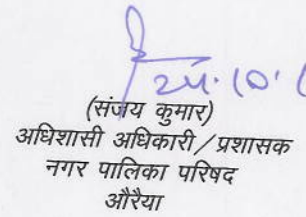 24.10.
(संजय कुमार)
अधिशासी अधिकारी/प्रशासक
नगर पालिका परिषद
औरैया